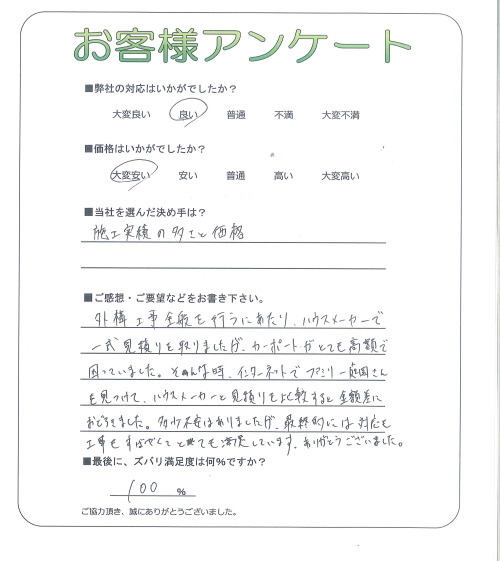 お客様アンケート
■弊社の対応はいかがでしたか？
大変良い 良い 普通 不満 大変不満
■価格はいかがでしたか？
大変安い 安い 普通 高い 大変高い
■当社を選んだ決め手は？
施工実績の多さと価格
■ご感想・ご要望などをお書き下さい。
外構工事全般を行うにあたり、ハウスメーカーで
一式見積りを取りましたが、カーポートがとても高額で
困っていました。そんな時、インターネットでファミリー庭園さん
を見つけて、ハウスメーカーと見積りを比較すると金額差に
おどろきました。多少不安はありましたが、最終的には対応も
工事もすばやくとても満足しています。ありがとうございました。
■最後に、ズバリ満足度は何%ですか？
100 %
ご協力頂き、誠にありがとうございました。